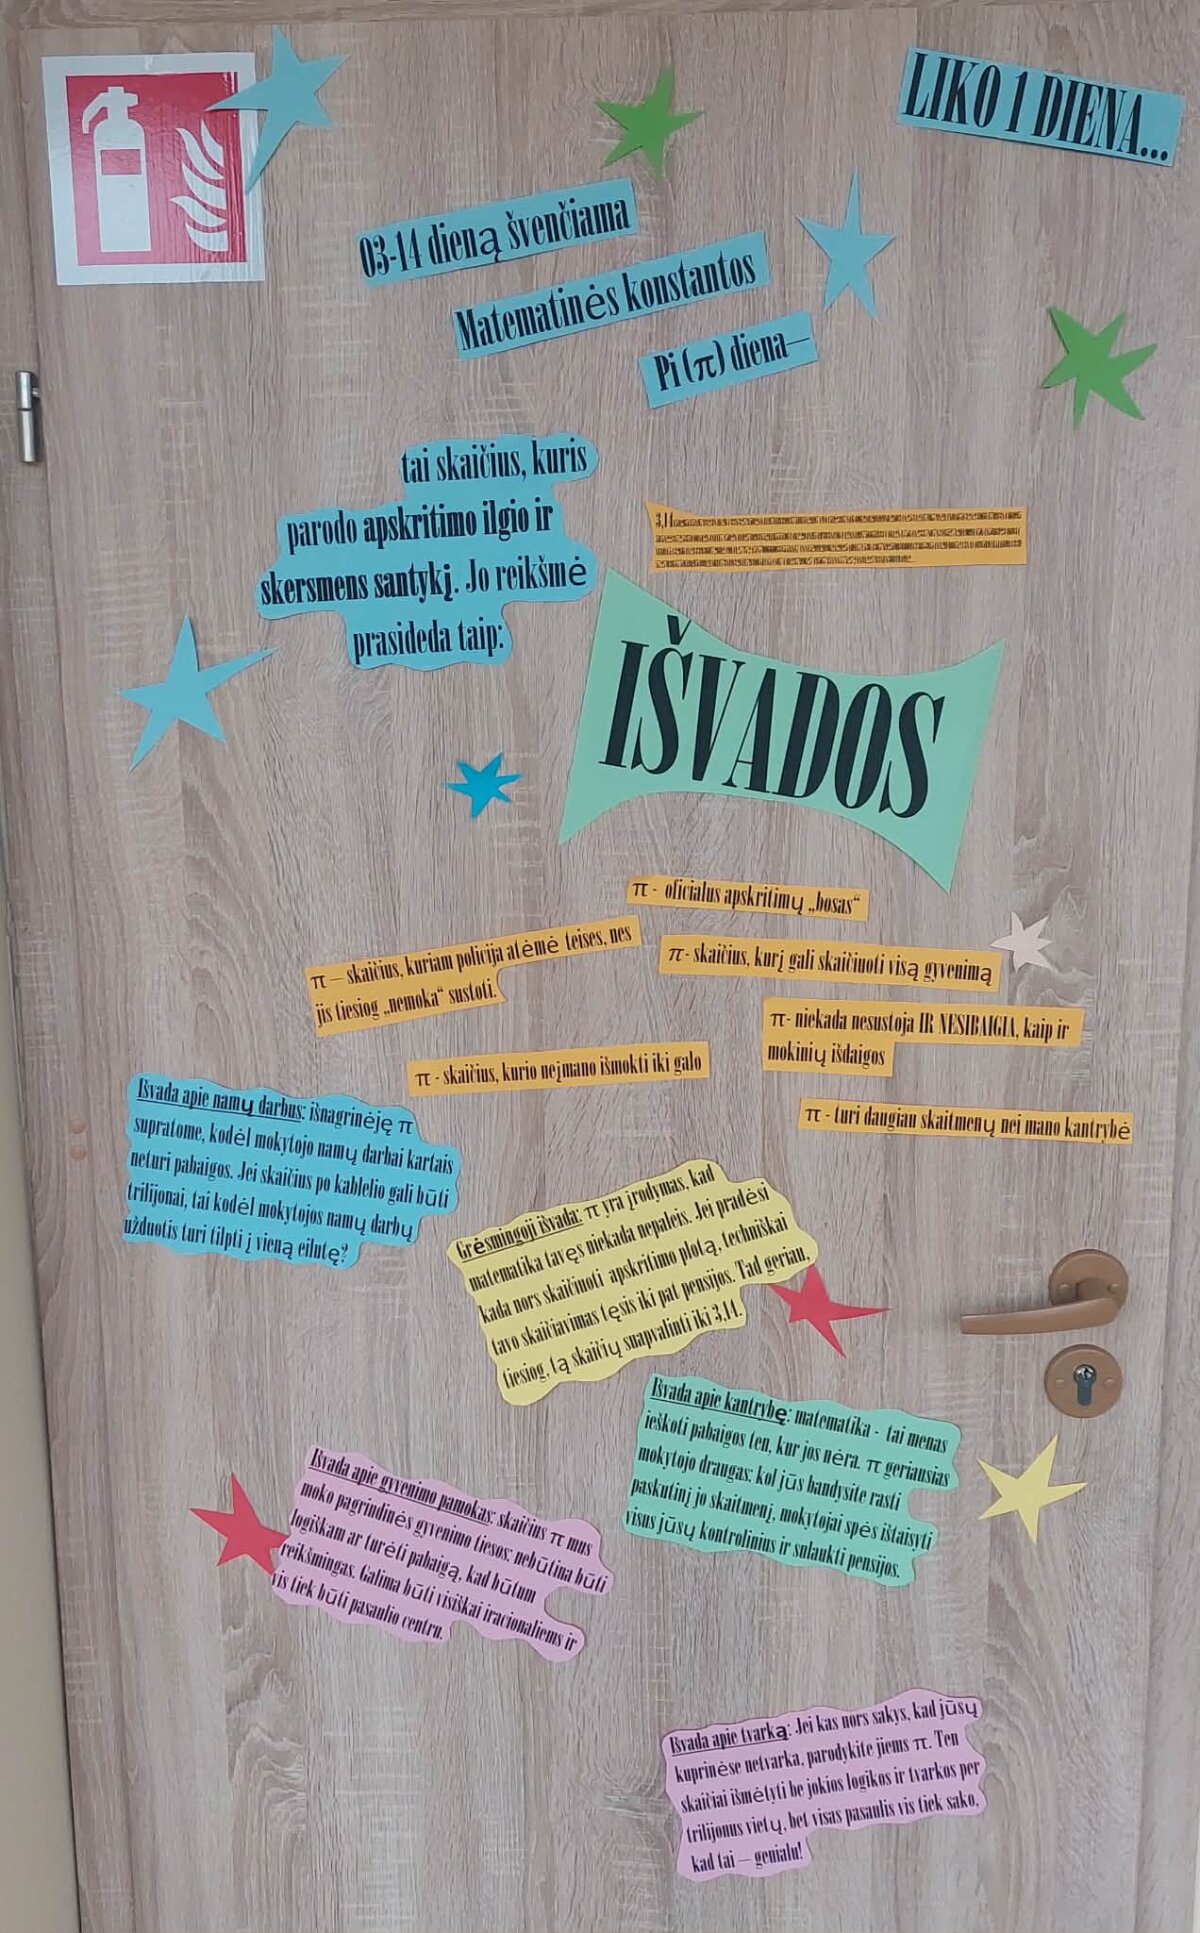 LIKO 1 DIENA...
03-14 dieną švenčiama
Matematinės konstantos
Pi (π) diena—
tai skaičius, kuris
parodo apskritimo ilgio ir
skersmens santykį. Jo reikšmė
prasideda taip:
3,14
IŠVADOS
π - oficialus apskritimų „bosas“
π – skaičius, kuriam policija atėmė teises, nes
jis tiesiog „nemoka“ sustoti.
π- skaičius, kurį gali skaičiuoti visą gyvenimą
π- niekada nesustoja IR NESIBAIGIA, kaip ir
mokinių išdaigos
π - skaičius, kurio neįmano išmokti iki galo
π - turi daugiau skaitmenų nei mano kantrybė
Išvada apie namų darbus: išnagrinėję π
supratome, kodėl mokytojo namų darbai kartais
neturi pabaigos. Jei skaičius po kablelio gali būti
trilijonai, tai kodėl mokytojos namų darbų
užduotis turi tilpti į vieną eilutę?
Grėsmingoji išvada: π yra įrodymas, kad
matematika tavęs niekada nepaleis. Jei pradėsi
kada nors skaičiuoti apskritimo plotą, techniškai
tavo skaičiavimas tęsis iki pat pensijos. Tad geriau,
tiesiog, tą skaičių suapvalinti iki 3,14.
Išvada apie kantrybę: matematika - tai menas
ieškoti pabaigos ten, kur jos nėra. π geriausias
mokytojo draugas: kol jūs bandysite rasti
paskutinį jo skaitmenį, mokytojai spės ištaisyti
visus jūsų kontrolinius ir sulaukti pensijos.
Išvada apie gyvenimo pamokas: skaičius π mus
moko pagrindinės gyvenimo tiesos: nebūtina būti
logiškam ar turėti pabaigą, kad būtum
reikšmingas. Galima būti visiškai iracionaliems ir
vis tiek būti pasaulio centru.
Išvada apie tvarką: Jei kas nors sakys, kad jūsų
kuprinėse netvarka, parodykite jiems π. Ten
skaičiai išmėtyti be jokios logikos ir tvarkos per
trilijonus vietų, bet visas pasaulis vis tiek sako,
kad tai – genialu!